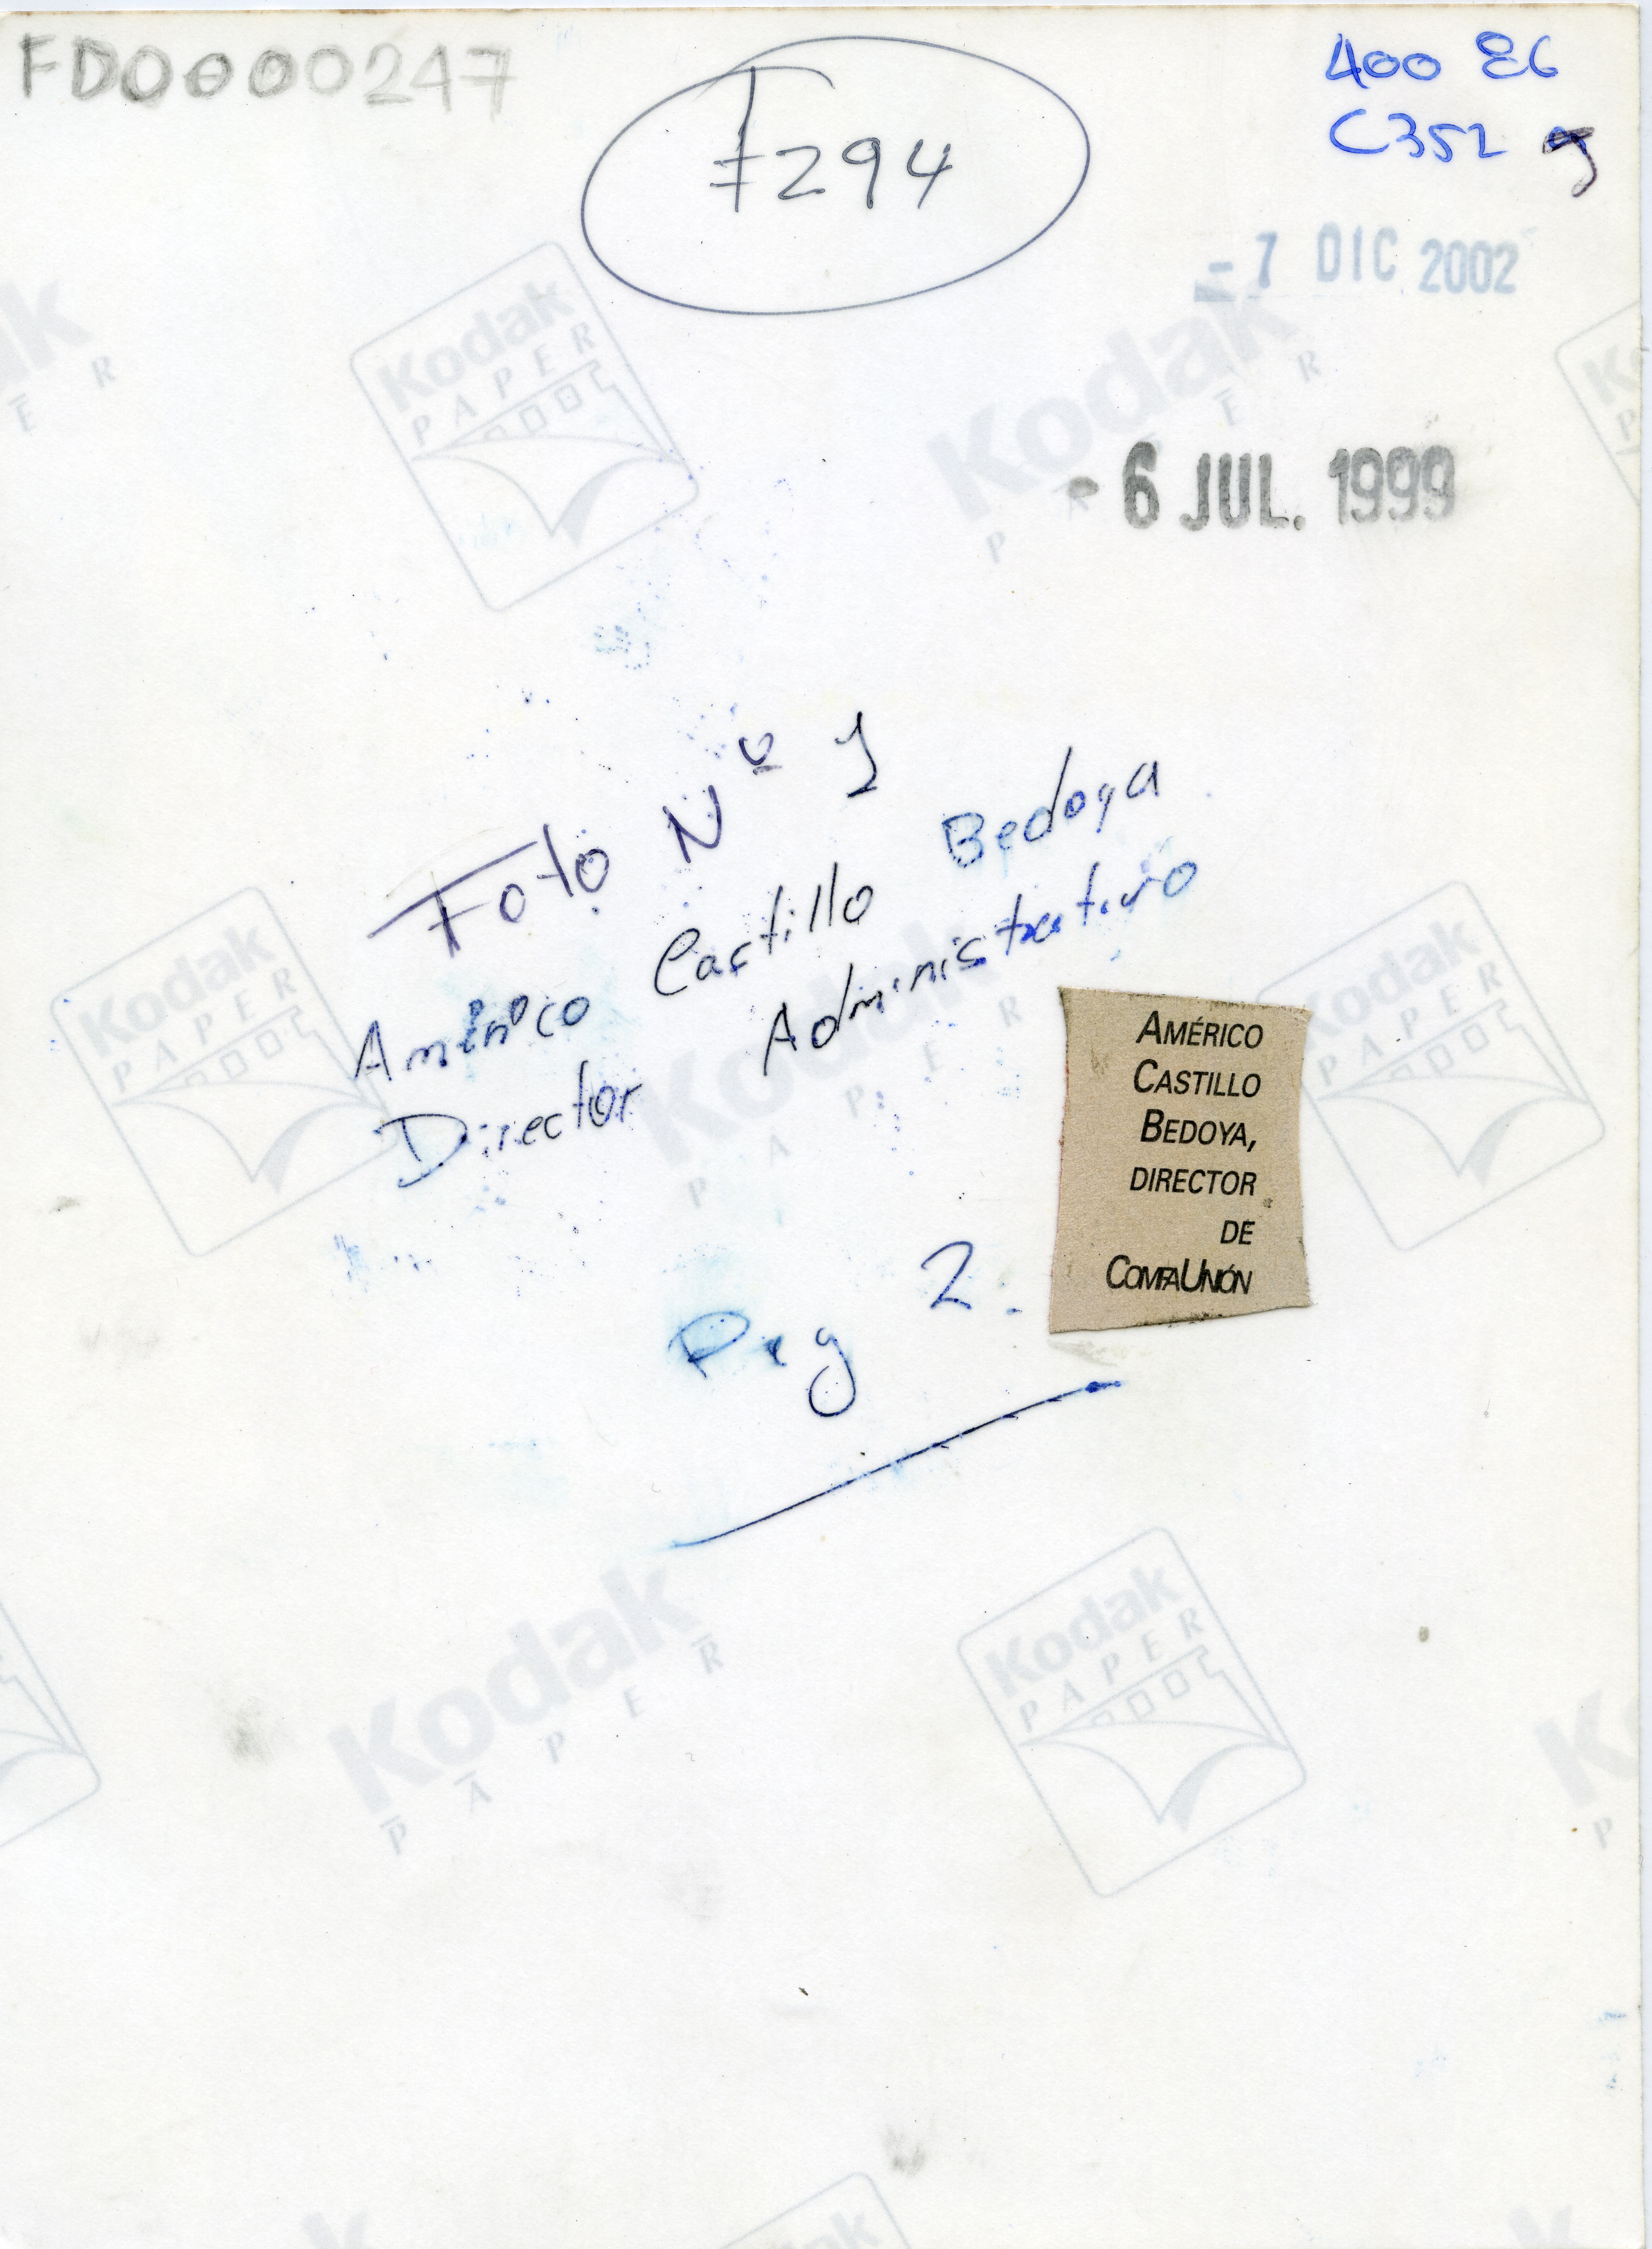 FD0000247
F294
400 E6
C352
- 7 DIC 2002
- 6 JUL. 1999
Foto Nº 1
Américo Castillo Bedoya
Director Administrativo
AMÉRICO
CASTILLO
BEDOYA,
DIRECTOR
DE
COMFAUNIÓN
Pag 2.
Kodak
PAPER